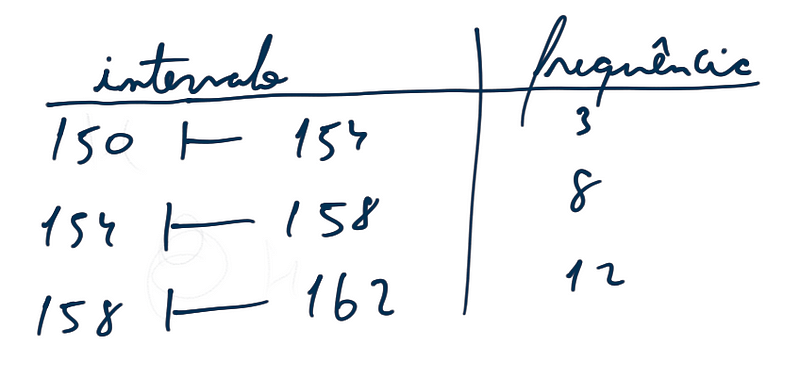 intervalo frequência
150 ⊢ 154 3
154 ⊢ 158 8
158 ⊢ 162 12